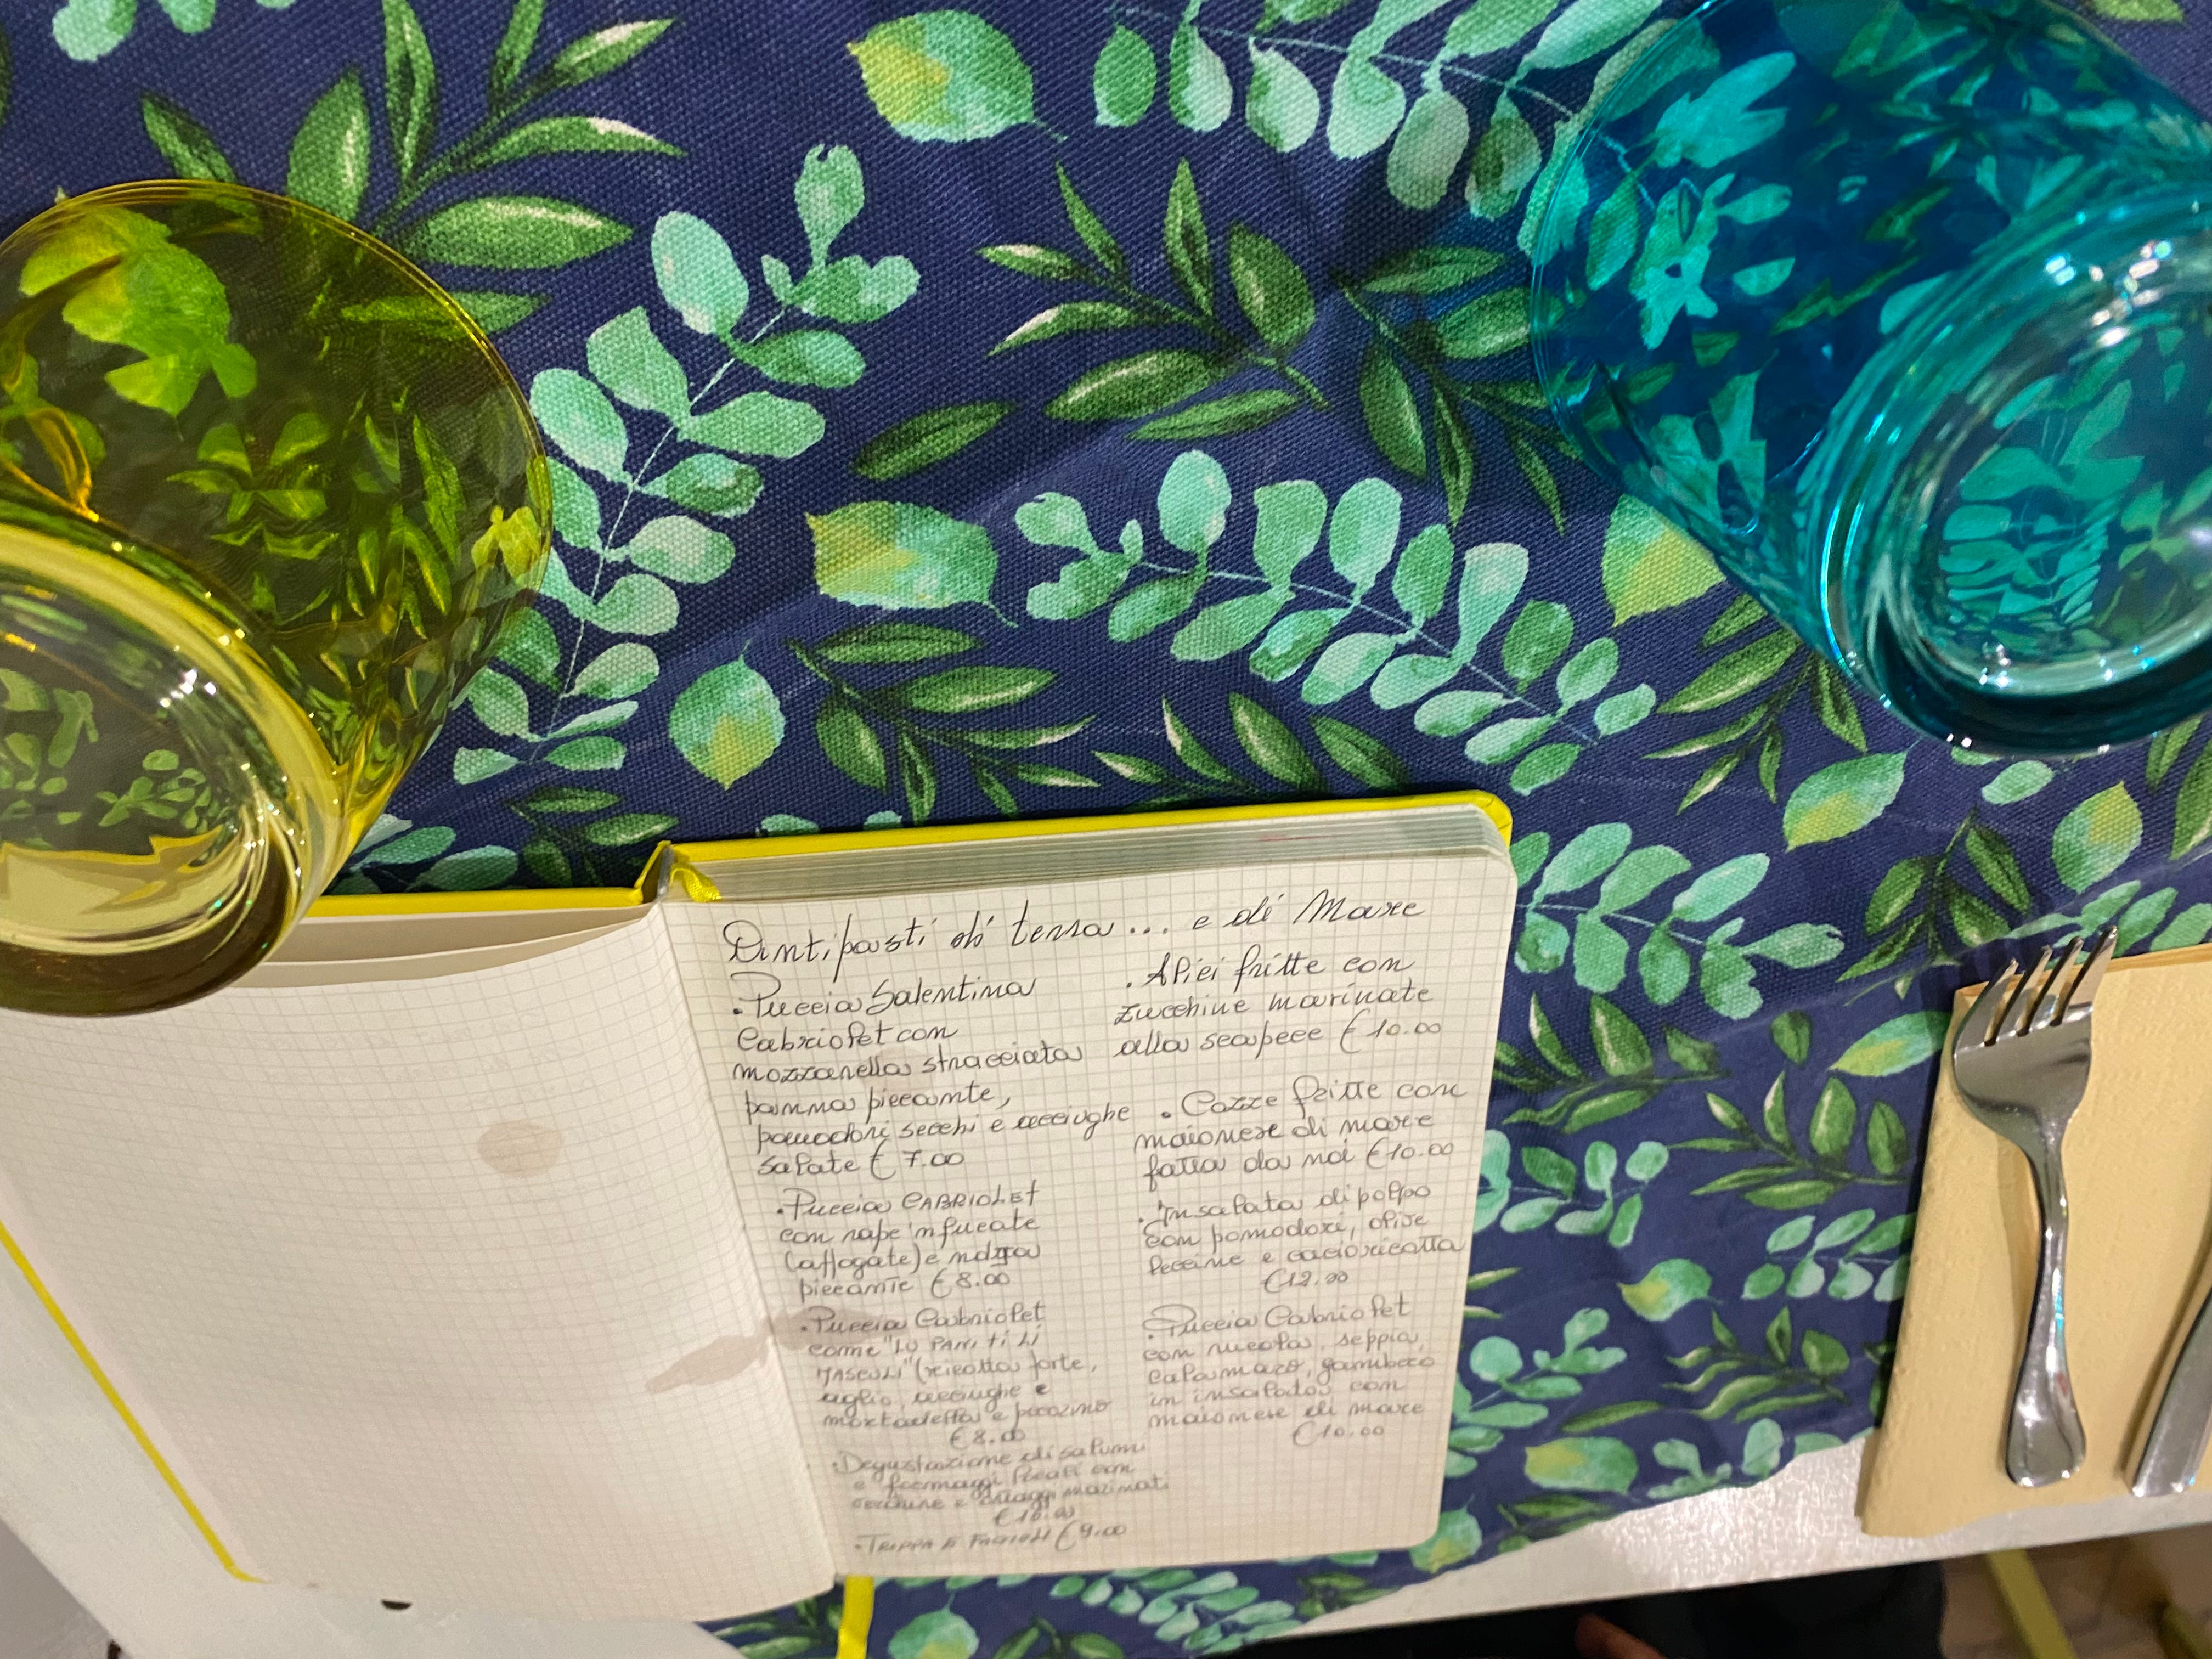 Antipasti di terra... e di Mare
. Puccia Salentina
Cabriolet con
mozzarella stracciata
panna piccante,
pomodori secchi e acciughe
salate € 7.00
. Puccia CABRIOLET
con rape 'nfucate
(affogate) e nduja
piccante € 8.00
. Puccia Cabriolet
come "LU PANI TI LI
MASCULI" (ricotta forte,
aglio, acciughe e
mortadella e pecorino
€ 8.00
. Degustazione di salumi
e formaggi locali con
verdure e ortaggi marinati
. TRIPPA E FAGIOLI € 9.00
. Alici fritte con
zucchine marinate
alla scapece € 10.00
. Cozze fritte con
maionese di mare
fatta da noi € 10.00
. Insalata di polpo
con pomodori, olive
leccine e cacioricotta
€ 12.00
. Puccia Cabriolet
con rucola, seppia,
calamaro, gambero
in insalata con
maionese di mare
€ 10.00